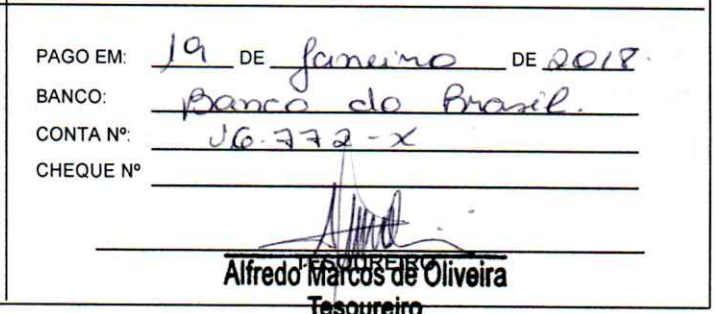 PAGO EM: 19 DE Janeiro DE 2018.
BANCO: Banco do Brasil.
CONTA Nº: 16.772-X
CHEQUE Nº
TESOUREIRO
Alfredo Marcos de Oliveira
Tesoureiro